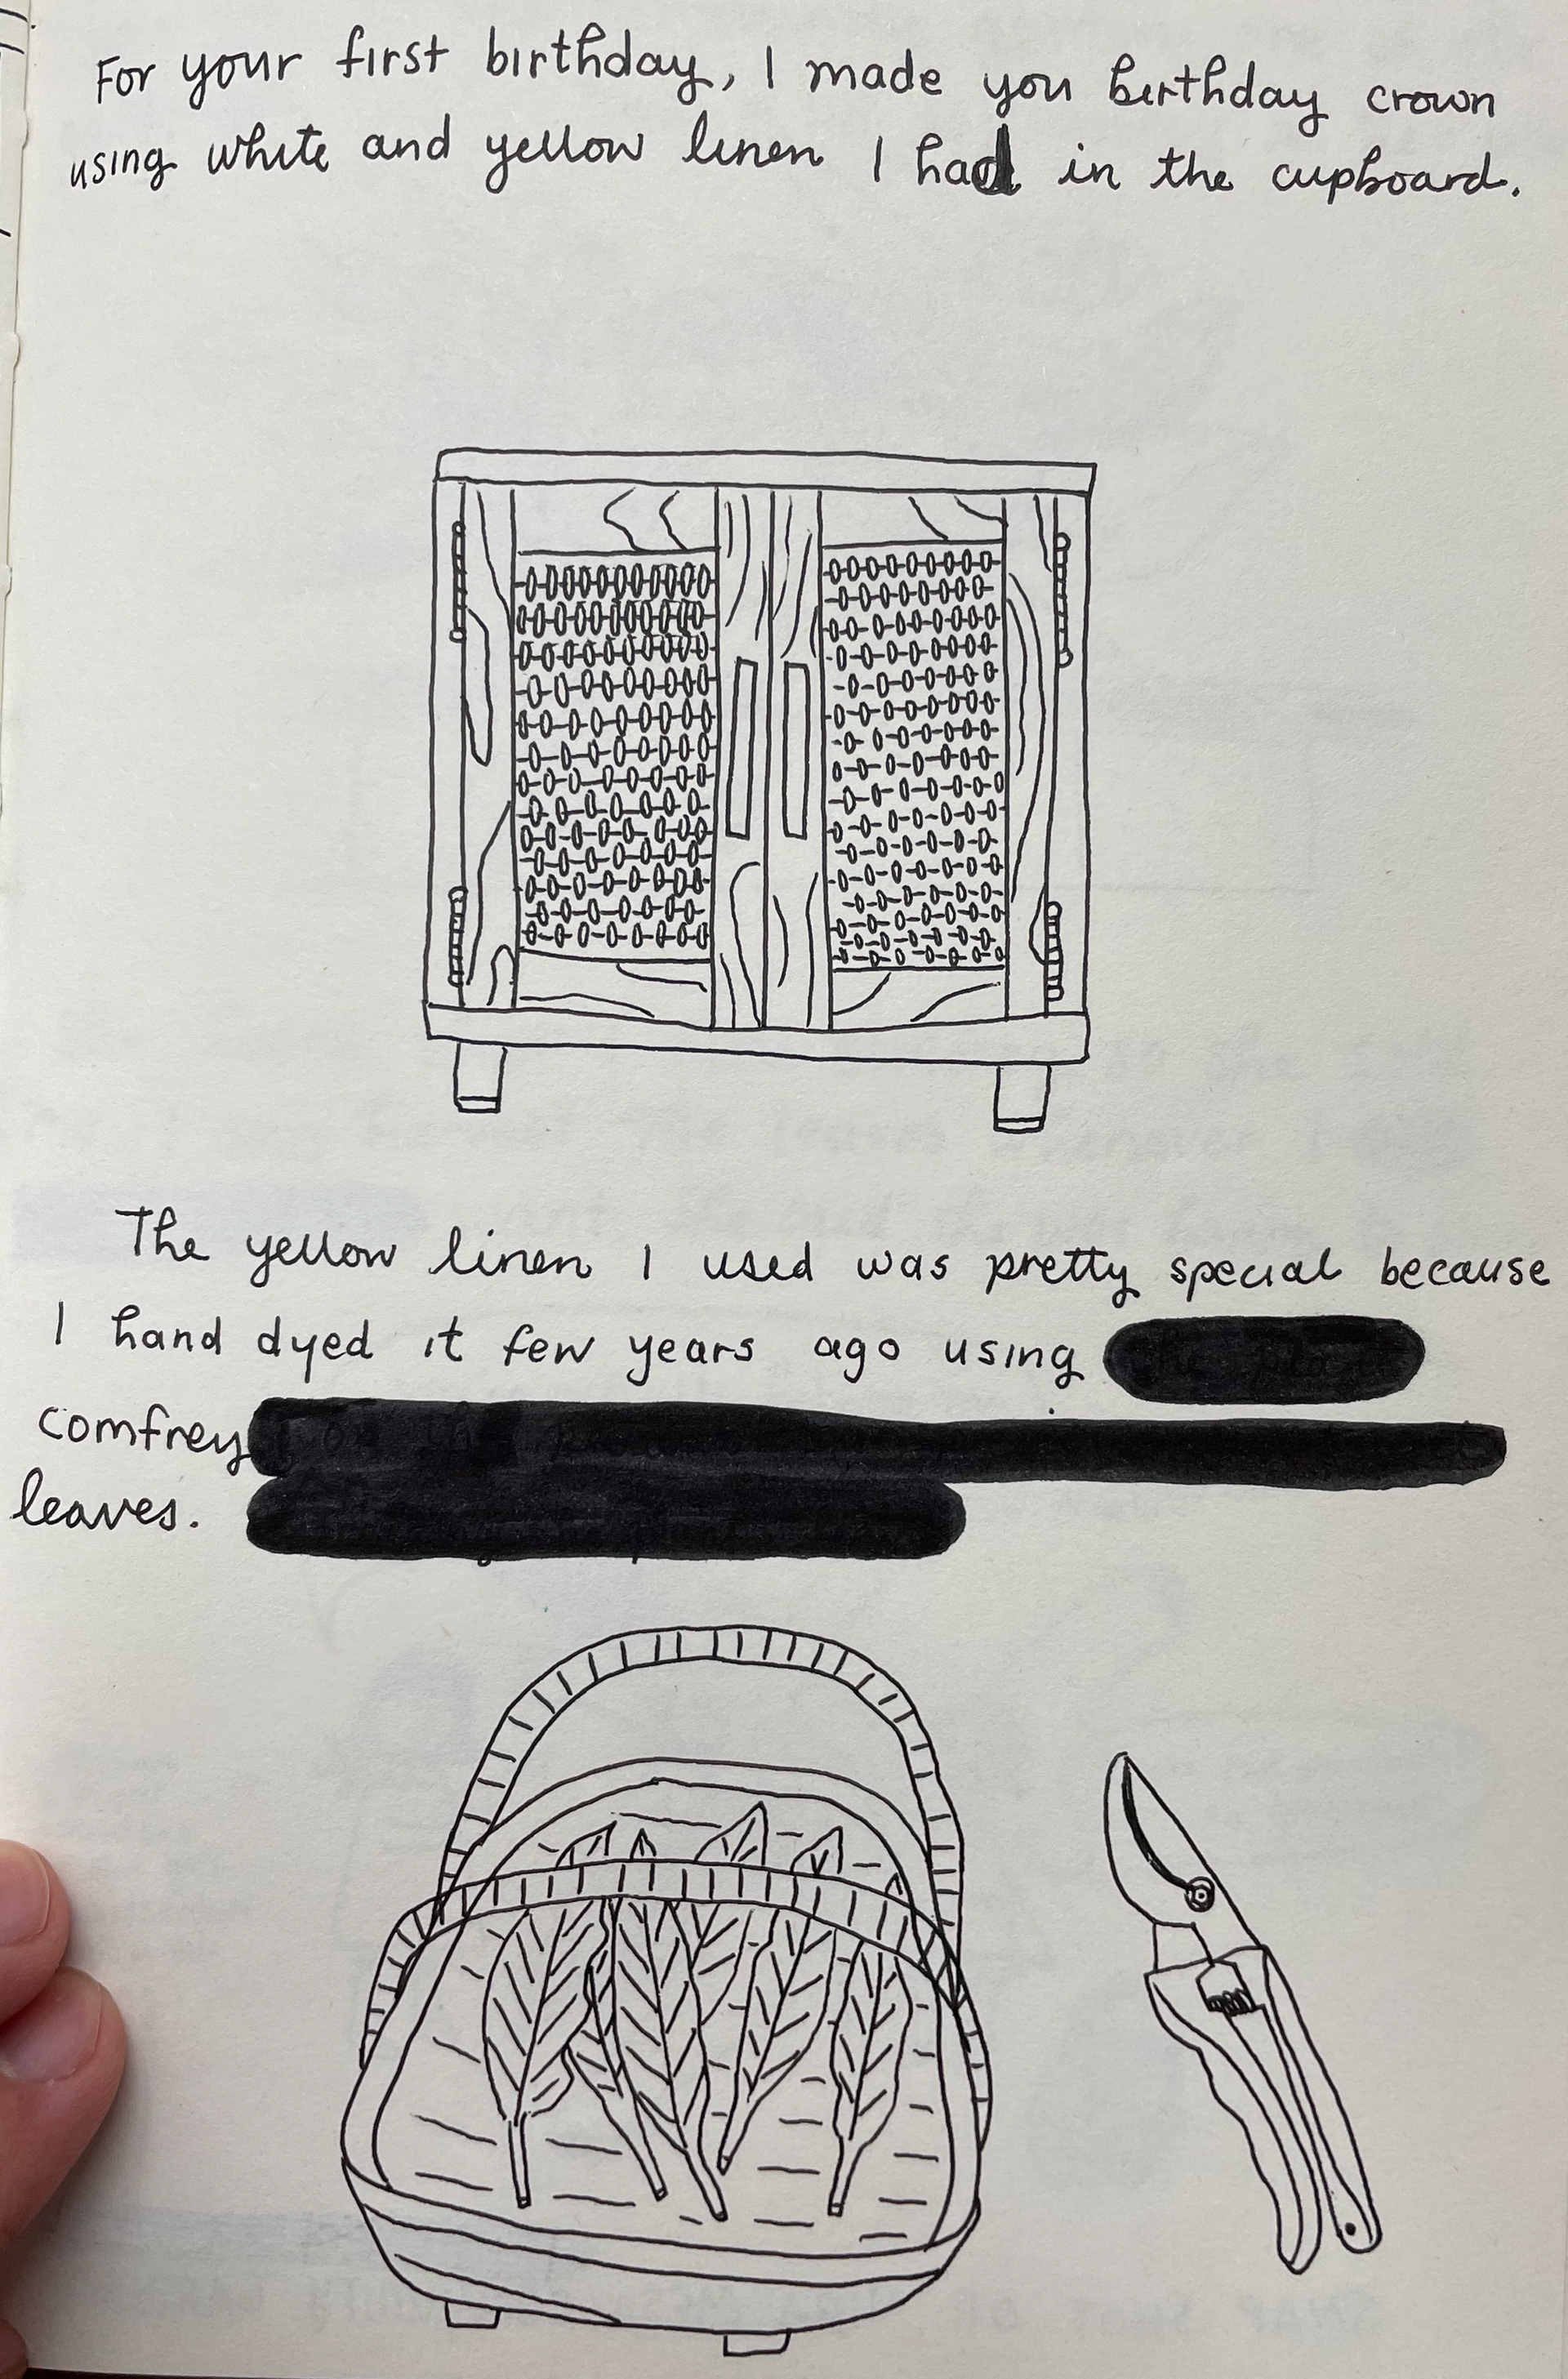 For your first birthday, I made you birthday crown
using white and yellow linen I had in the cupboard.
The yellow linen I used was pretty special because
I hand dyed it few years ago using
comfrey
leaves.